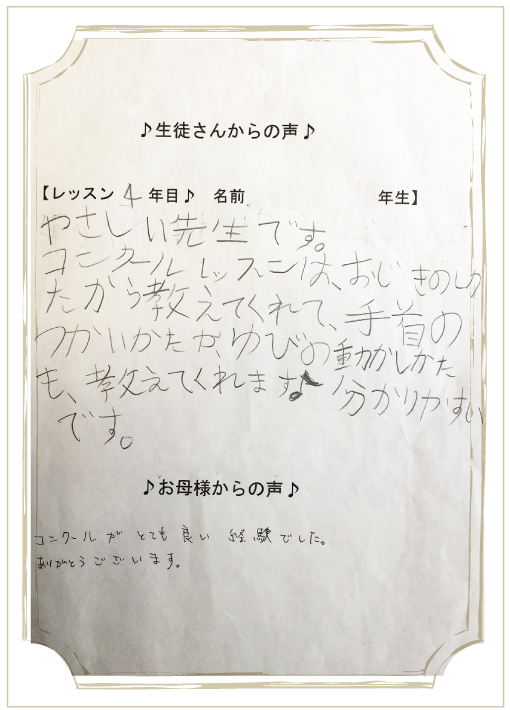 ♪生徒さんからの声♪
【レッスン 4 年目♪ 名前 年生】
やさしい先生です。
コンクールレッスンは、おじぎのしか
たから教えてくれて、手首の
つかいかたや、ゆびの動かしかた
も、教えてくれます♪分かりやすい
です。
♪お母様からの声♪
コンクールが とても 良い 経験でした。
ありがとうございます。